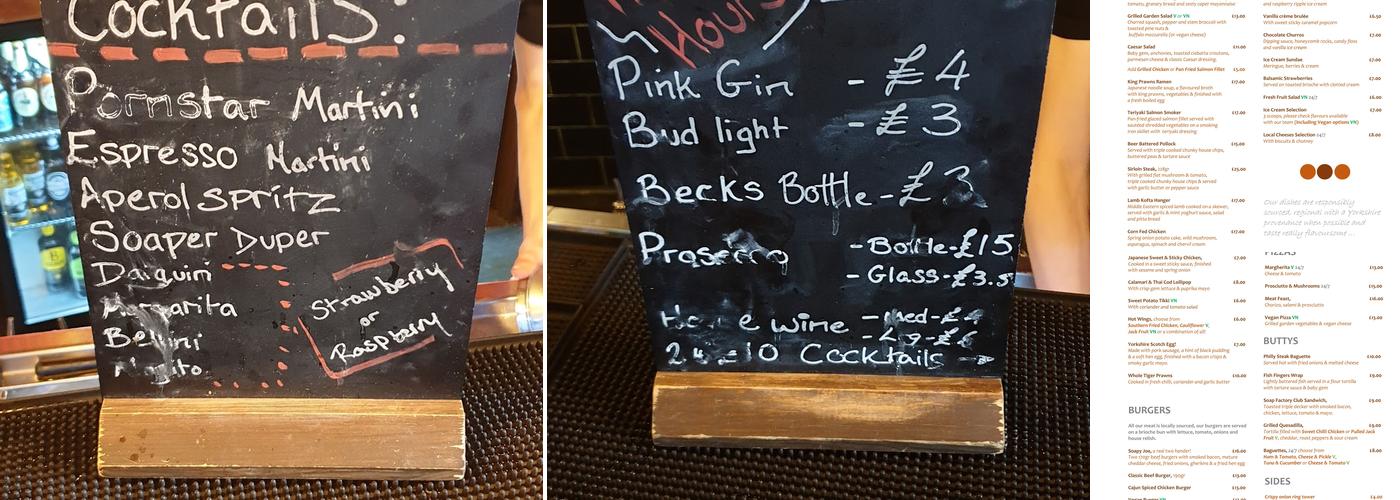 Cocktails!
Pornstar Martini
Espresso Martini
Aperol spritz
Soaper Duper
Daiquiri
Margarita
Bellini
Mojito
Strawberry
or
Raspberry
Hours
Pink Gin - £4
Bud light - £3
Becks Bottle - £3
Prosecco - Bottle - £15
- Glass - £3.5
wine - Med - £4
Cocktails
tomato, granary bread and zesty caper mayonnaise
Grilled Garden Salad V or VN £13.00
Charred squash, pepper and stem broccoli with
toasted pine nuts &
buffalo mozzarella (or vegan cheese)
Caesar Salad £11.00
Baby gem, anchovies, toasted ciabatta croutons,
parmesan cheese & classic Caesar dressing.
Add Grilled Chicken or Pan Fried Salmon Fillet £5.00
King Prawns Ramen £17.00
Japanese noodle soup, a flavoured broth
with king prawns, vegetables & finished with
a fresh boiled egg
Teriyaki Salmon Smoker £17.00
Pan-fried glazed salmon fillet served with
sautéed shredded vegetables on a smoking
iron skillet with teriyaki dressing
Beer Battered Pollock £15.00
Served with triple cooked chunky house chips,
buttered peas & tartare sauce
Sirloin Steak, 228gr £25.00
With grilled flat mushroom & tomato,
triple cooked chunky house chips & served
with garlic butter or pepper sauce
Lamb Kofta Hanger £17.00
Middle Eastern spiced lamb cooked on a skewer,
served with garlic & mint yoghurt sauce, salad
and pitta bread
Corn Fed Chicken £17.00
Spring onion potato cake, wild mushrooms,
asparagus, spinach and chervil cream
Japanese Sweet & Sticky Chicken, £7.00
Cooked in a sweet sticky sauce, finished
with sesame and spring onion
Calamari & Thai Cod Lollipop £8.00
With crisp gem lettuce & paprika mayo
Sweet Potato Tikki VN £6.00
With coriander and tomato salad
Hot Wings, choose from £6.00
Southern Fried Chicken, Cauliflower V,
Jack Fruit VN or a combination of all!
Yorkshire Scotch Egg! £7.00
Made with pork sausage, a hint of black pudding
& a soft hen egg, finished with a bacon crisps &
smoky garlic mayo.
Whole Tiger Prawns £10.00
Cooked in fresh chilli, coriander and garlic butter
BURGERS
All our meat is locally sourced, our burgers are served
on a brioche bun with lettuce, tomato, onions and
house relish.
Soapy Joe, a real two hander! £16.00
Two 170gr beef burgers with smoked bacon, mature
cheddar cheese, fried onions, gherkins & a fried hen egg
Classic Beef Burger, 190gr £13.00
Cajun Spiced Chicken Burger £13.00
and raspberry ripple ice cream
Vanilla crème brulée £6.50
With sweet sticky caramel popcorn
Chocolate Churros £7.00
Dipping sauce, honeycomb rocks, candy floss
and vanilla ice cream
Ice Cream Sundae £7.00
Meringue, berries & cream
Balsamic Strawberries £7.00
Served on toasted brioche with clotted cream
Fresh Fruit Salad VN 24/7 £6.00
Ice Cream Selection £7.00
3 scoops, please check flavours available
with our team (including Vegan options VN)
Local Cheeses Selection 24/7 £8.00
With biscuits & chutney
Our dishes are responsibly
sourced, regional with a Yorkshire
provenance when possible and
taste really flavoursome ...
PIZZAS
Margherita V 24/7 £13.00
Cheese & tomato
Prosciutto & Mushrooms 24/7 £15.00
Meat Feast, £16.00
Chorizo, salami & prosciutto
Vegan Pizza VN £13.00
Grilled garden vegetables & vegan cheese
BUTTYS
Philly Steak Baguette £10.00
Served hot with fried onions & melted cheese
Fish Fingers Wrap £9.00
Lightly battered fish served in a flour tortilla
with tartare sauce & baby gem
Soap Factory Club Sandwich, £9.00
Toasted triple decker with smoked bacon,
chicken, lettuce, tomato & mayo.
Grilled Quesadilla, £9.00
Tortilla filled with Sweet Chilli Chicken or Pulled Jack
Fruit V, cheddar, roast peppers & sour cream
Baguettes, 24/7 choose from £8.00
Ham & Tomato, Cheese & Pickle V,
Tuna & Cucumber or Cheese & Tomato V
SIDES
Crispy onion ring tower £4.00